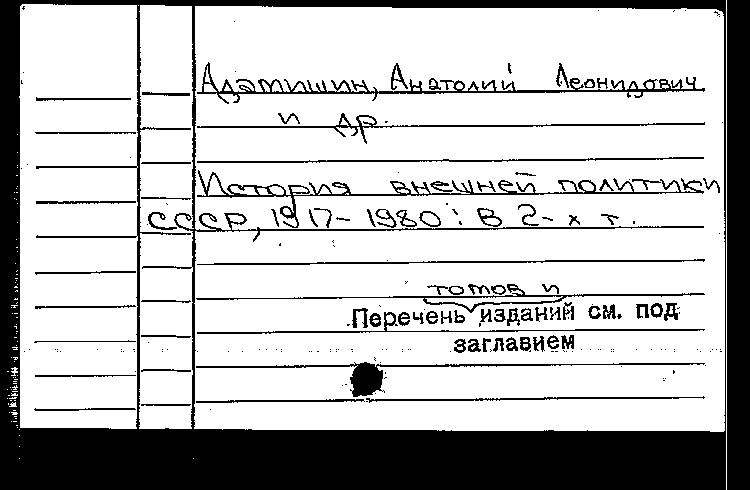 Адамишин, Анатолий Леонидович
и др.
История внешней политики
СССР, 1917-1980: В 2-х т.
томов и
Перечень изданий см. под
заглавием